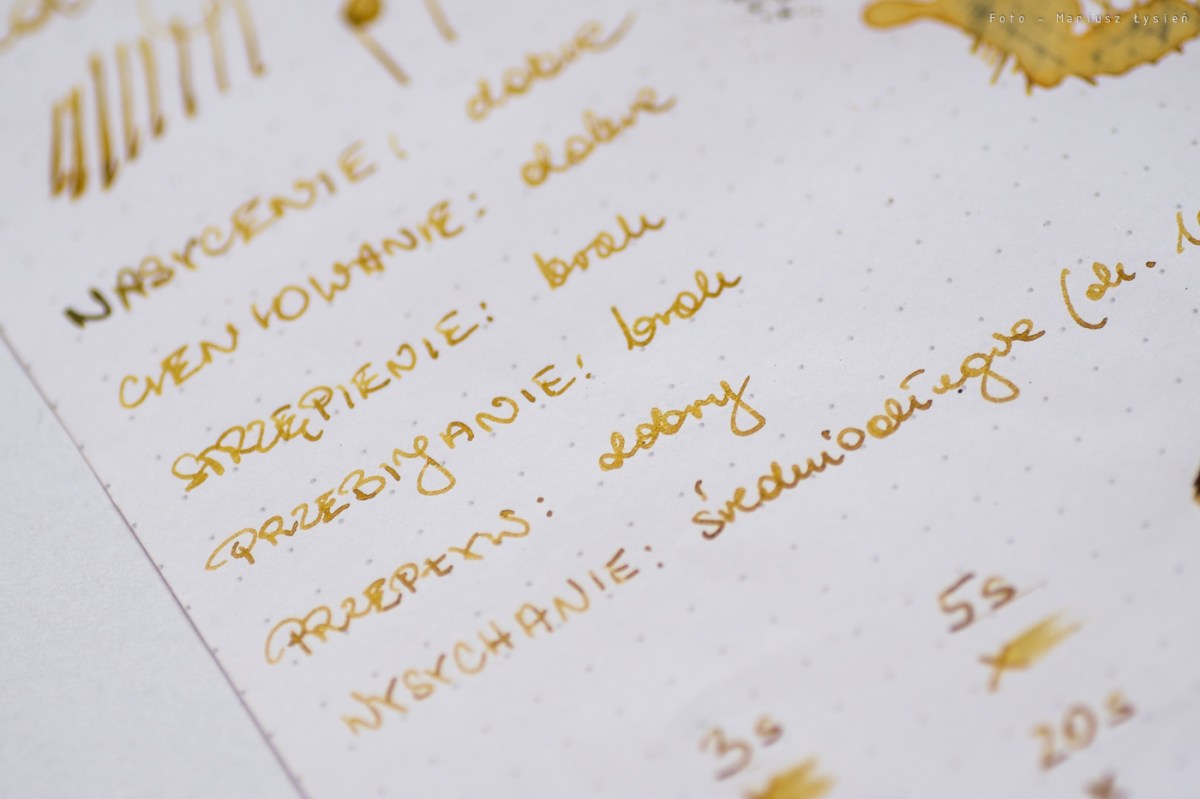 Foto - Mariusz Łysień
NASYCENIE: dobre
CIENIOWANIE: dobre
STRZĘPIENIE: brak
PRZEBIJANIE: brak
PRZEPŁYW: dobry
WYSYCHANIE: średniodługie (ok.
5s
3s
20s